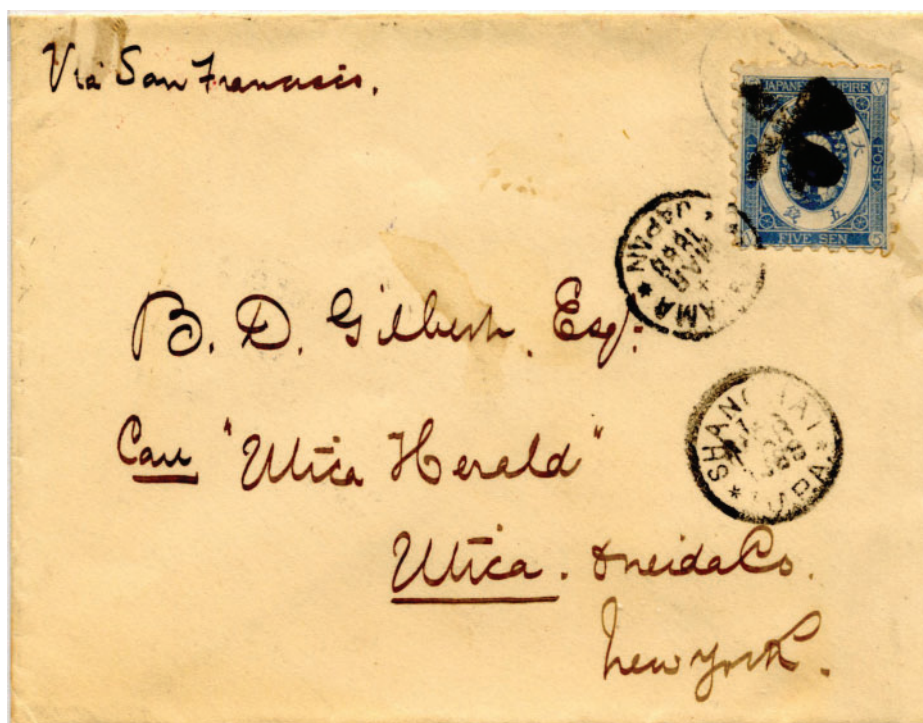 Via San Francisco.
JAPANESE EMPIRE
POST
POST
大日
五
銭
FIVE SEN
JAPAN
MAR
1888
B. D. Gilbert. Esq.
Care "Utica Herald"
SHANGHAI
Utica. Oneida Co.
New York.